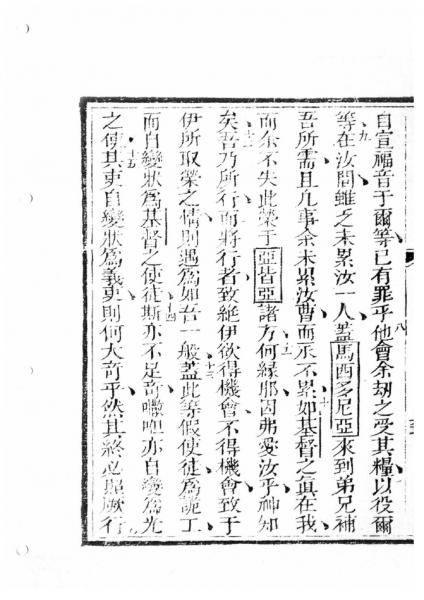 自宣福音于爾等已有罪乎他會余刼之受其糧以役爾
等在汝間雖乏未累汝一人蓋馬西多尼亞來到弟兄補
吾所需且凡事余未累汝曹而永不累如基督之真在我
而余不失此榮于亞皆亞諸方何緣耶因弗愛汝乎神知
矣吾乃所行而將行者致絕伊欲得機會不得機會致于
伊所取榮之情則遇為如吾一般蓋此等假使徒為詭工
而自變狀為基督之使徒斯亦不足奇囉哋亦自變為光
之使其吏自變狀為義吏則何大奇乎然其終必照厥行
八
九
十
十一
十二
十三
十四
十五